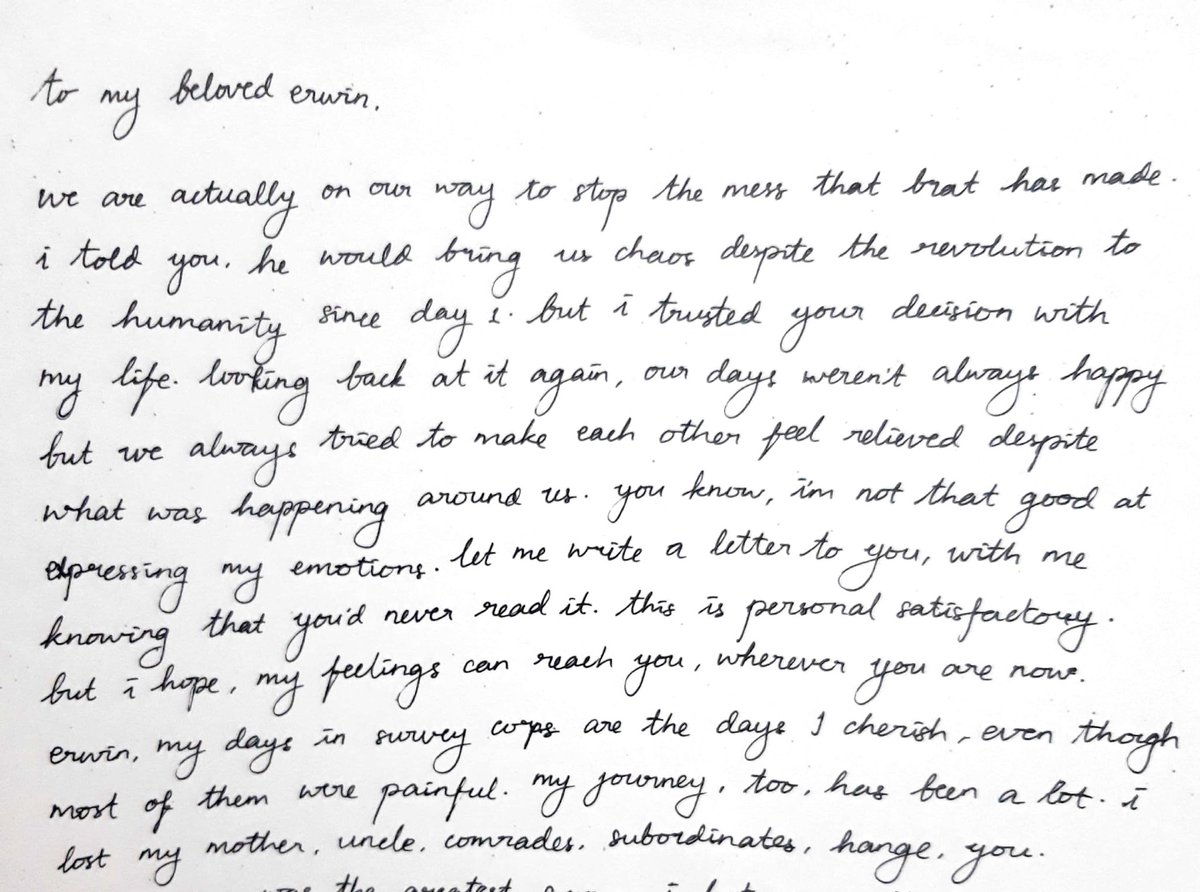 to my beloved erwin.
we are actually on our way to stop the mess that brat has made.
i told you. he would bring us chaos despite the revolution to
the humanity since day 1. but i trusted your decision with
my life. looking back at it again, our days weren't always happy
but we always tried to make each other feel relieved despite
what was happening around us. you know, i'm not that good at
expressing my emotions. let me write a letter to you, with me
knowing that you'd never read it. this is personal satisfactory.
but i hope, my feelings can reach you, wherever you are now.
erwin, my days in survey corps are the days I cherish, even though
most of them were painful. my journey, too, has been a lot. i
lost my mother, uncle, comrades, subordinates, hange, you.
was the greatest